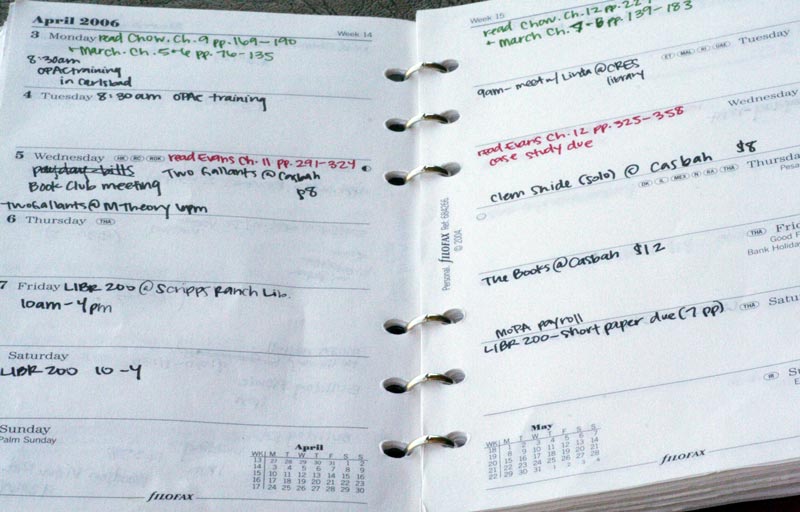 April 2006
Week 14
3 Monday read Chow. Ch. 9 pp. 169-190
+ March. Ch. 5+6 pp. 76-135
8:30am
OPAC training
in Carlsbad
4 Tuesday 8:30am OPAC training
5 Wednesday HK RC ROK read Evans Ch. 11 pp. 291-324
pay day - bills Two Gallants @ Casbah
Book Club meeting $8
Two Gallants @ M-Theory 4pm
6 Thursday THA
7 Friday LIBR 200 @ Scripps Ranch Lib.
10am-4pm
Saturday
LIBR 200 10-4
Sunday
Palm Sunday
April
WK M T W T F S S
13 27 28 29 30 31 1 2
14 3 4 5 6 7 8 9
15 10 11 12 13 14 15 16
16 17 18 19 20 21 22 23
17 24 25 26 27 28 29 30
FILOFAX
Personal FILOFAX Ref: 684266
© 2004
Week 15
read Chow. Ch. 12 pp.
+ March Ch. 7-8 pp 139-183
Tuesday
9am-meet w/ Linda @ CRES
library
Wednesday
read Evans Ch. 12 pp. 325-358
case study due
Thursda
DK IL MEX N NA THA
Clem Snide (solo) @ Casbah $8
THA Frid
Good F
Bank Holiday
The Books @ Casbah $12
THA Satu
MoPA payroll
LIBR 200-short paper due (7 pp)
Su
May
WK M T W T F S S
18 1 2 3 4 5 6 7
19 8 9 10 11 12 13 14
20 15 16 17 18 19 20 21
21 22 23 24 25 26 27 28
22 29 30 31 1 2 3 4
FILOFAX